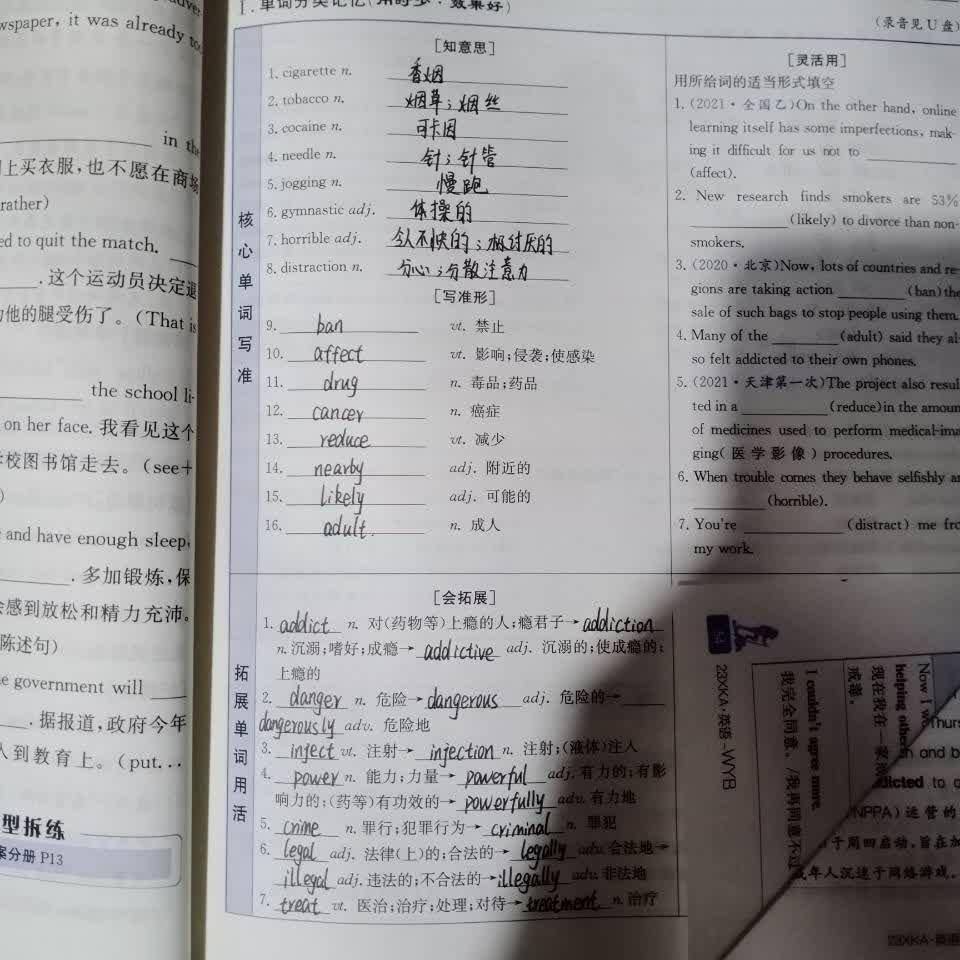 newspaper, it was already to
in the
上买衣服,也不愿在商场
rather)
ed to quit the match.
.这个运动员决定退
他的腿受伤了。(That is
the school li-
on her face. 我看见这个
学校图书馆走去。(see+
)
and have enough sleep,
.多加锻炼,保
会感到放松和精力充沛。
陈述句)
e government will
.据报道,政府今年
人到教育上。(put...
型拆练
案分册 P13
Ⅰ.单词分类记忆(用时少·效果好)
(录音见 U 盘)
核心单词写准
[知意思]
1. cigarette n. 香烟
2. tobacco n. 烟草;烟丝
3. cocaine n. 可卡因
4. needle n. 针;针管
5. jogging n. 慢跑
6. gymnastic adj. 体操的
7. horrible adj. 令人不快的;极讨厌的
8. distraction n. 分心;分散注意力
[写准形]
9. ban vt. 禁止
10. affect vt. 影响;侵袭;使感染
11. drug n. 毒品;药品
12. cancer n. 癌症
13. reduce vt. 减少
14. nearby adj. 附近的
15. likely adj. 可能的
16. adult. n. 成人
[灵活用]
用所给词的适当形式填空
1. (2021·全国乙)On the other hand, online
learning itself has some imperfections, mak-
ing it difficult for us not to
(affect).
2. New research finds smokers are 53%
(likely) to divorce than non-
smokers.
3. (2020·北京)Now, lots of countries and re-
gions are taking action (ban) the
sale of such bags to stop people using them.
4. Many of the (adult) said they al-
so felt addicted to their own phones.
5. (2021·天津第一次)The project also resul
ted in a (reduce)in the amoun
of medicines used to perform medical-ima
ging(医学影像) procedures.
6. When trouble comes they behave selfishly an
(horrible).
7. You're (distract) me fro
my work.
拓展单词用活
[会拓展]
1. addict n. 对(药物等)上瘾的人;瘾君子→addiction
n.沉溺;嗜好;成瘾→addictive adj. 沉溺的;使成瘾的;
上瘾的
2. danger n. 危险→dangerous adj. 危险的→
dangerously adv. 危险地
3. inject vt. 注射→injection n. 注射;(液体)注入
4. power n. 能力;力量→powerful adj. 有力的;有影
响力的;(药等)有功效的→powerfully adv. 有力地
5. crime n. 罪行;犯罪行为→criminal n. 罪犯
6. legal adj. 法律(上)的;合法的→legally adv. 合法地→
illegal adj. 违法的;不合法的→illegally adv. 非法地
7. treat vt. 医治;治疗;处理;对待→treatment n. 治疗
23XKA·英语-WYB
Now I w
helping other
现在我在一家戒
戒毒。
I couldn't agree more.
我完全同意。/我再同意不过
Thurs
h and b
dicted to
(NPPA)运营的
于周四启动,旨在加
成年人沉迷于网络游戏。
23XKA·英语